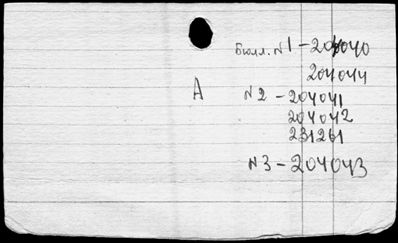 Бюлл. N1 - 204040
204044
A
N2 - 204041
204042
231261
N3 - 204043